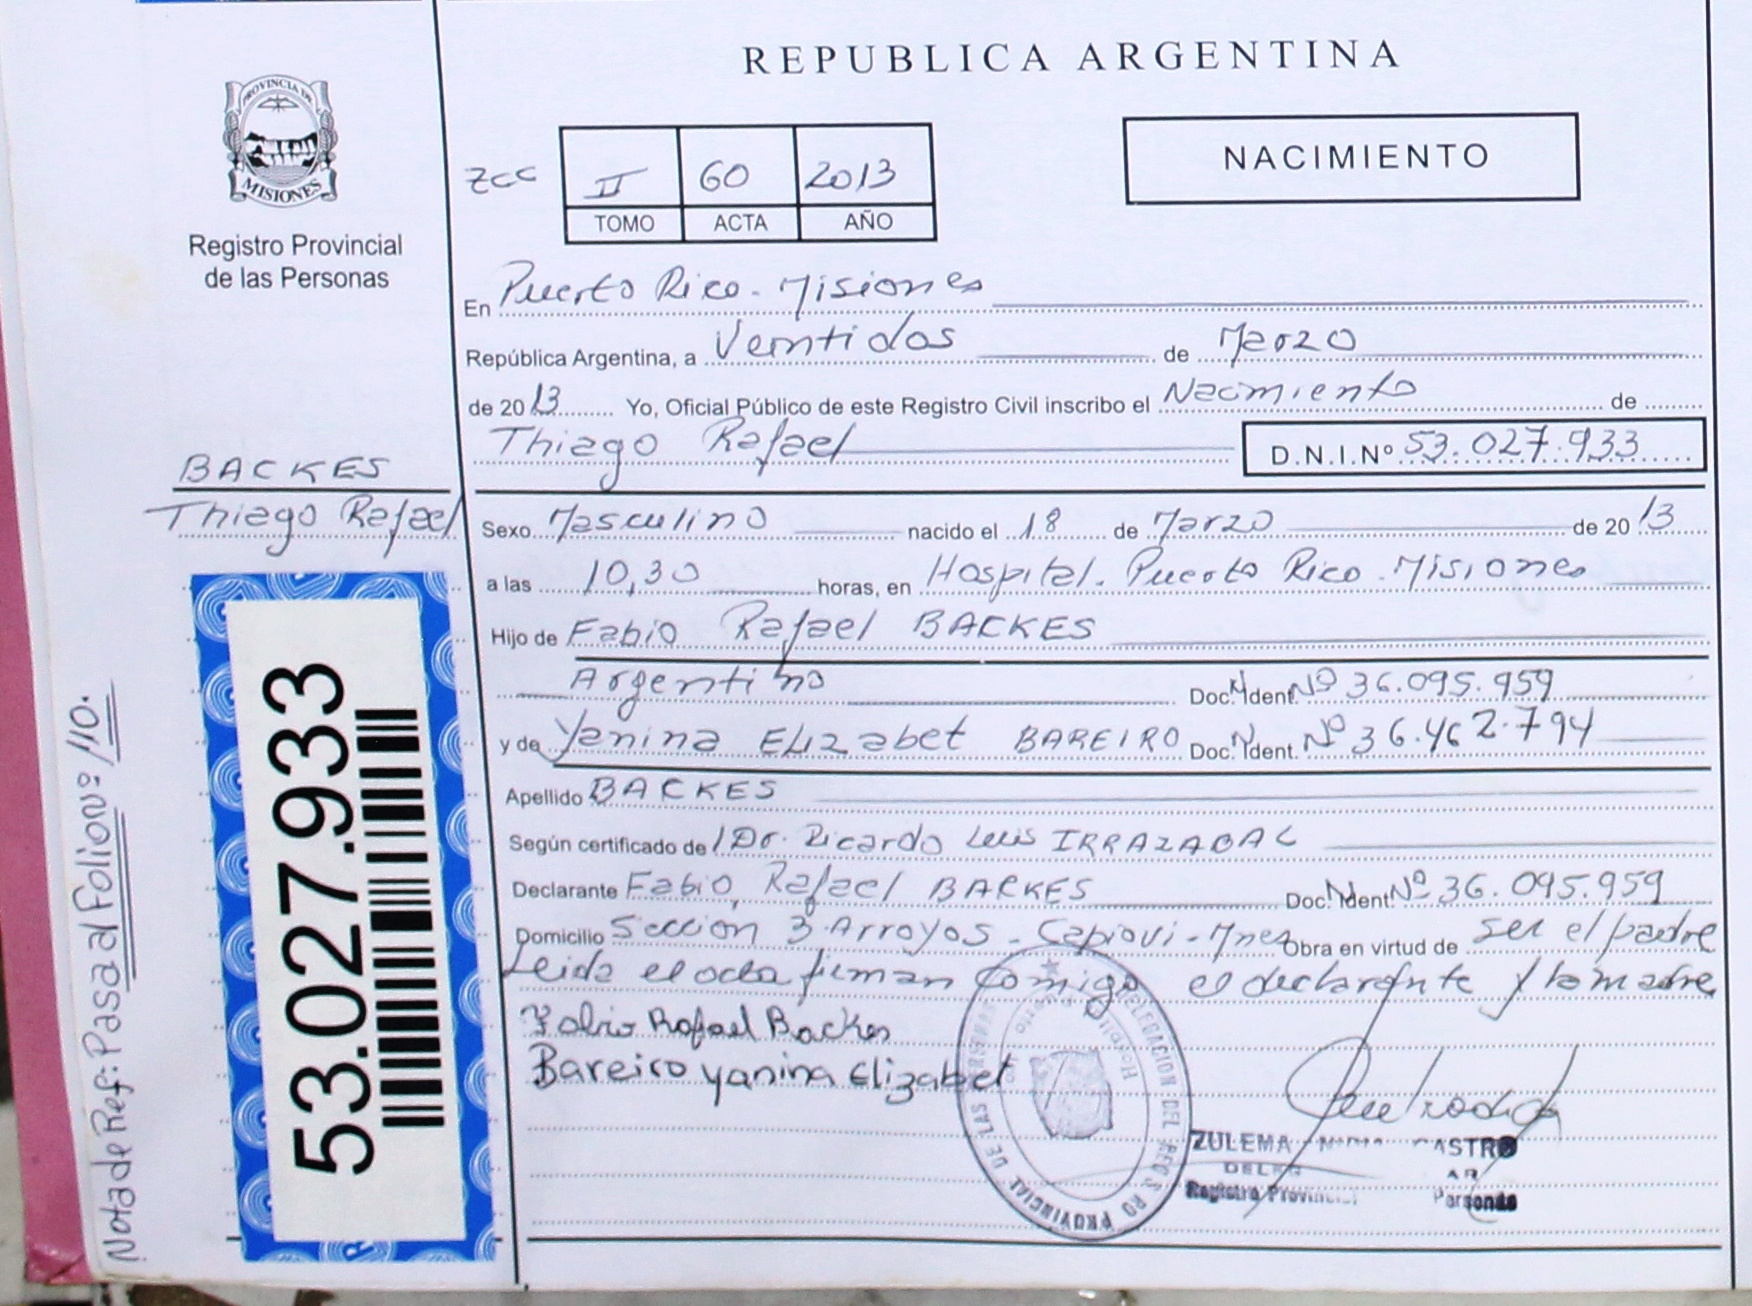 REPUBLICA ARGENTINA
PROVINCIA DE
MISIONES
Registro Provincial
de las Personas
NACIMIENTO
ZCC II 60 2013
TOMO ACTA AÑO
En Puerto Rico. Misiones
República Argentina, a Veintidos de Marzo
de 2013 Yo, Oficial Público de este Registro Civil inscribo el Nacimiento de
Thiago Rafael D.N.I.Nº 53.027.933
BACKES
Thiago Rafael
Sexo Masculino nacido el 18 de Marzo de 2013
a las 10,30 horas, en Hospital. Puerto Rico. Misiones
Hijo de Fabio Rafael BACKES
Argentino Doc. Ident. Nº 36.095.959
y de Yanina ELizabet BAREIRO Doc. Ident. Nº 36.462.794
Apellido BACKES
Según certificado de Dr. Ricardo Luis IRRAZABAL
Declarante Fabio Rafael BACKES Doc. Ident Nº 36.095.959
Domicilio Sección 3 Arroyos - Capiovi - Mnes Obra en virtud de ser el padre
Leida el acta firman comigo el declarante y la madre
Fabio Rafael Backes
Bareiro Yanina Elizabet
ZULEMA ASTRO
Registro Personas
53.027.933
Nota de Ref: Pasa al Folio nº 110.